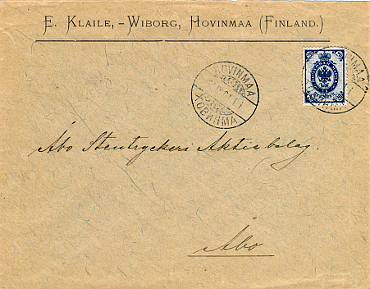 E. KLAILE, -WIBORG, HOVINMAA (FINLAND.)
HOVINMAA
ХОВИНМА
Åbo Stentryckeri Aktiebolag.
Åbo